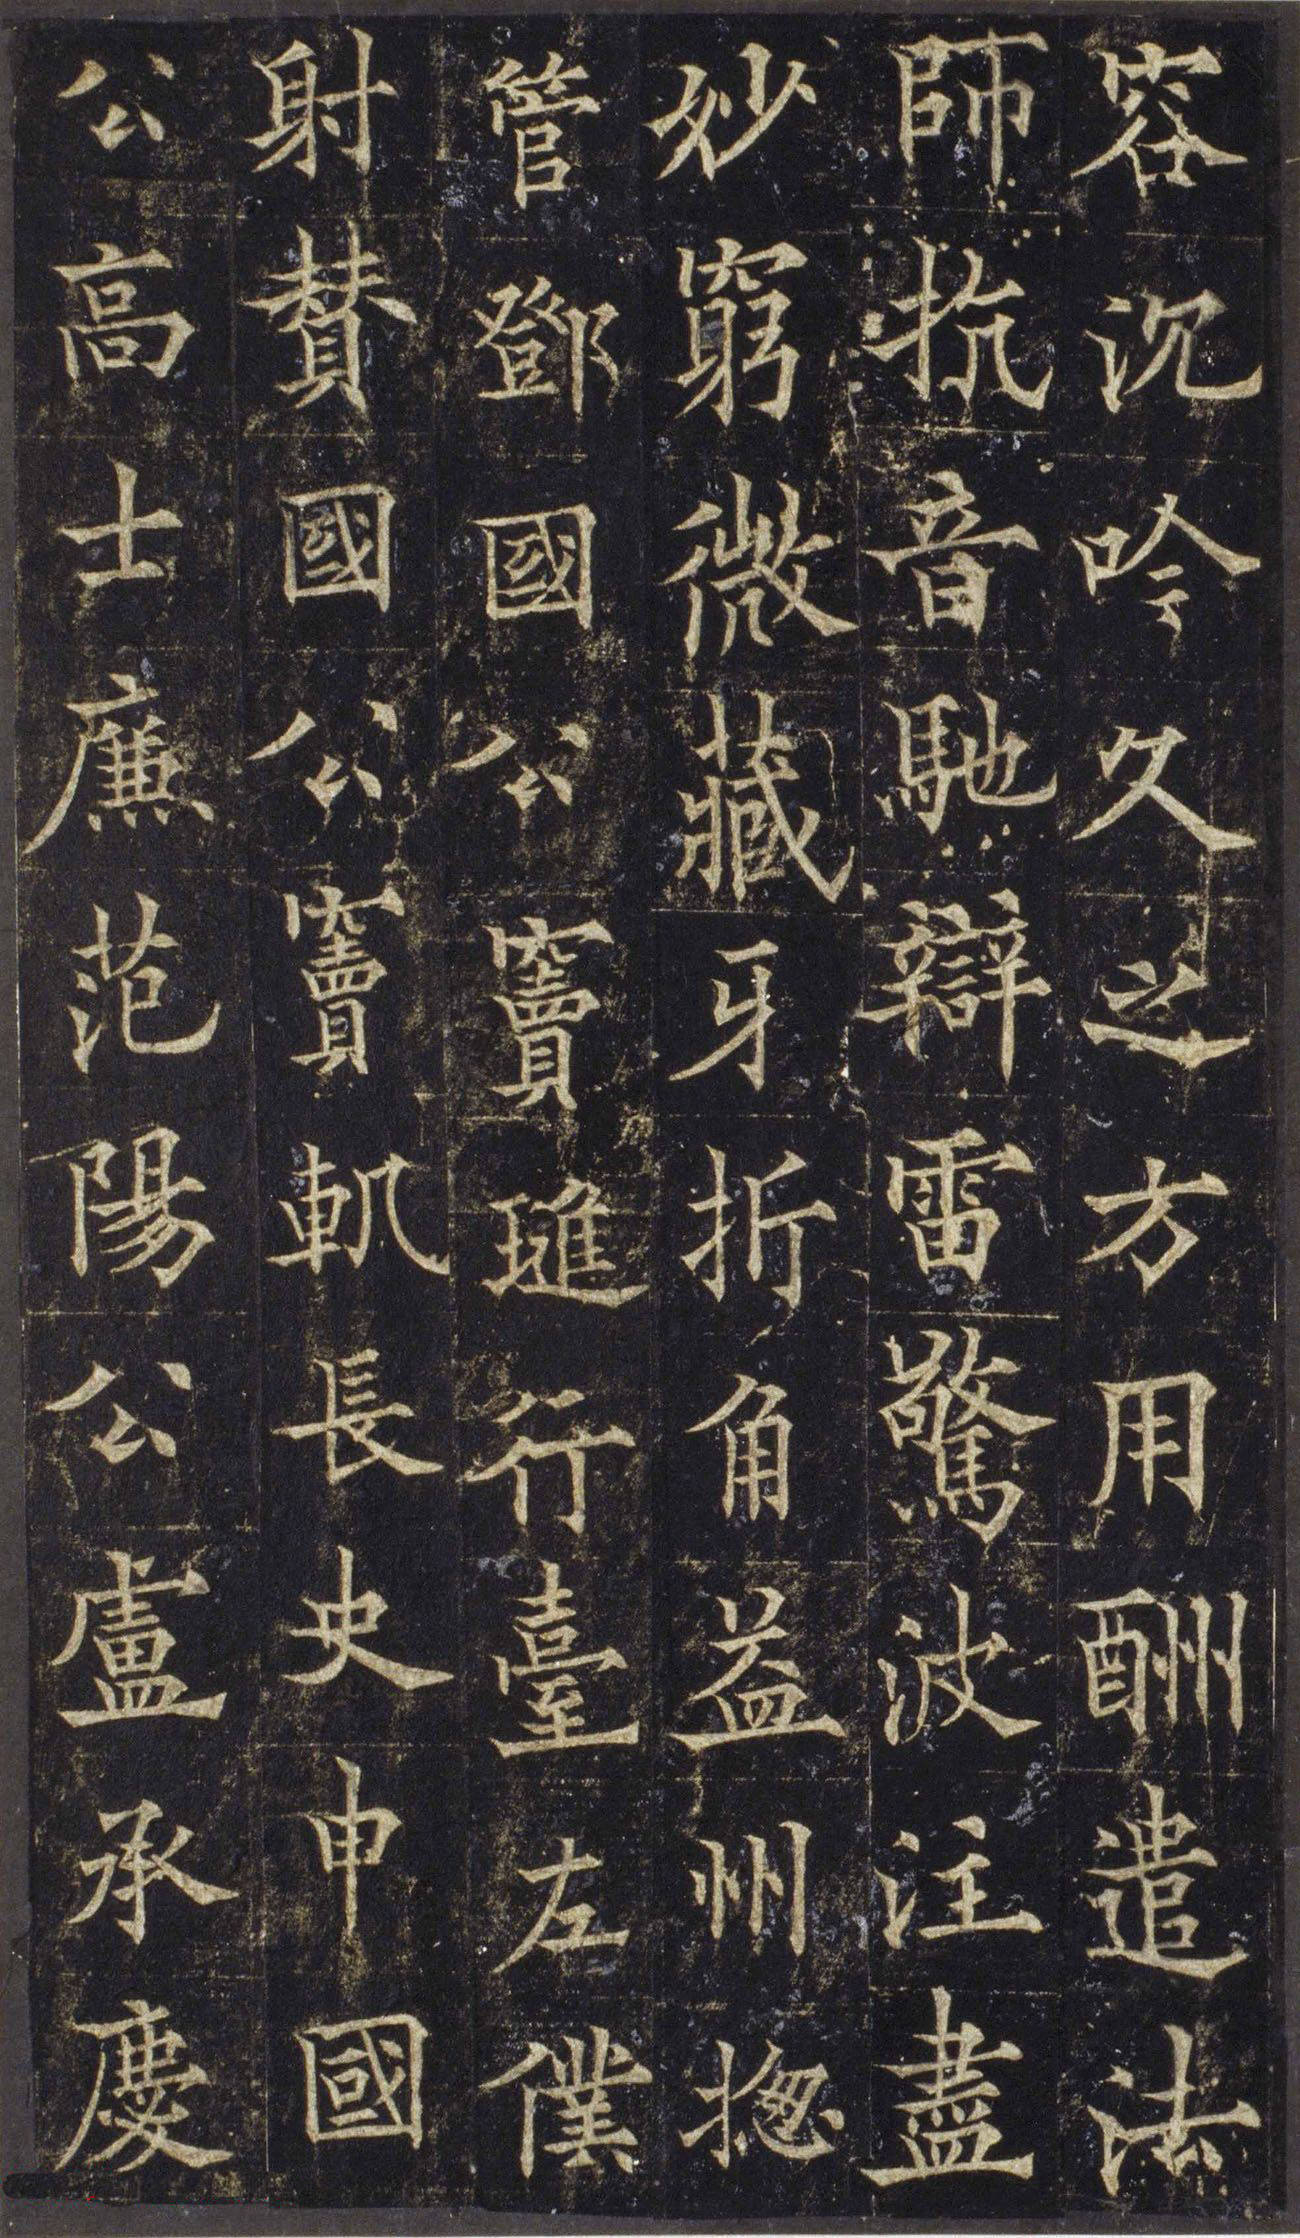 容沉吟久之方用酬遣法
師抗音馳辯雷驚波注盡
妙窮微藏牙折角益州揔
管鄧國公竇璡行臺左僕
射賛國公竇軌長史申國
公高士廉范陽公盧承慶